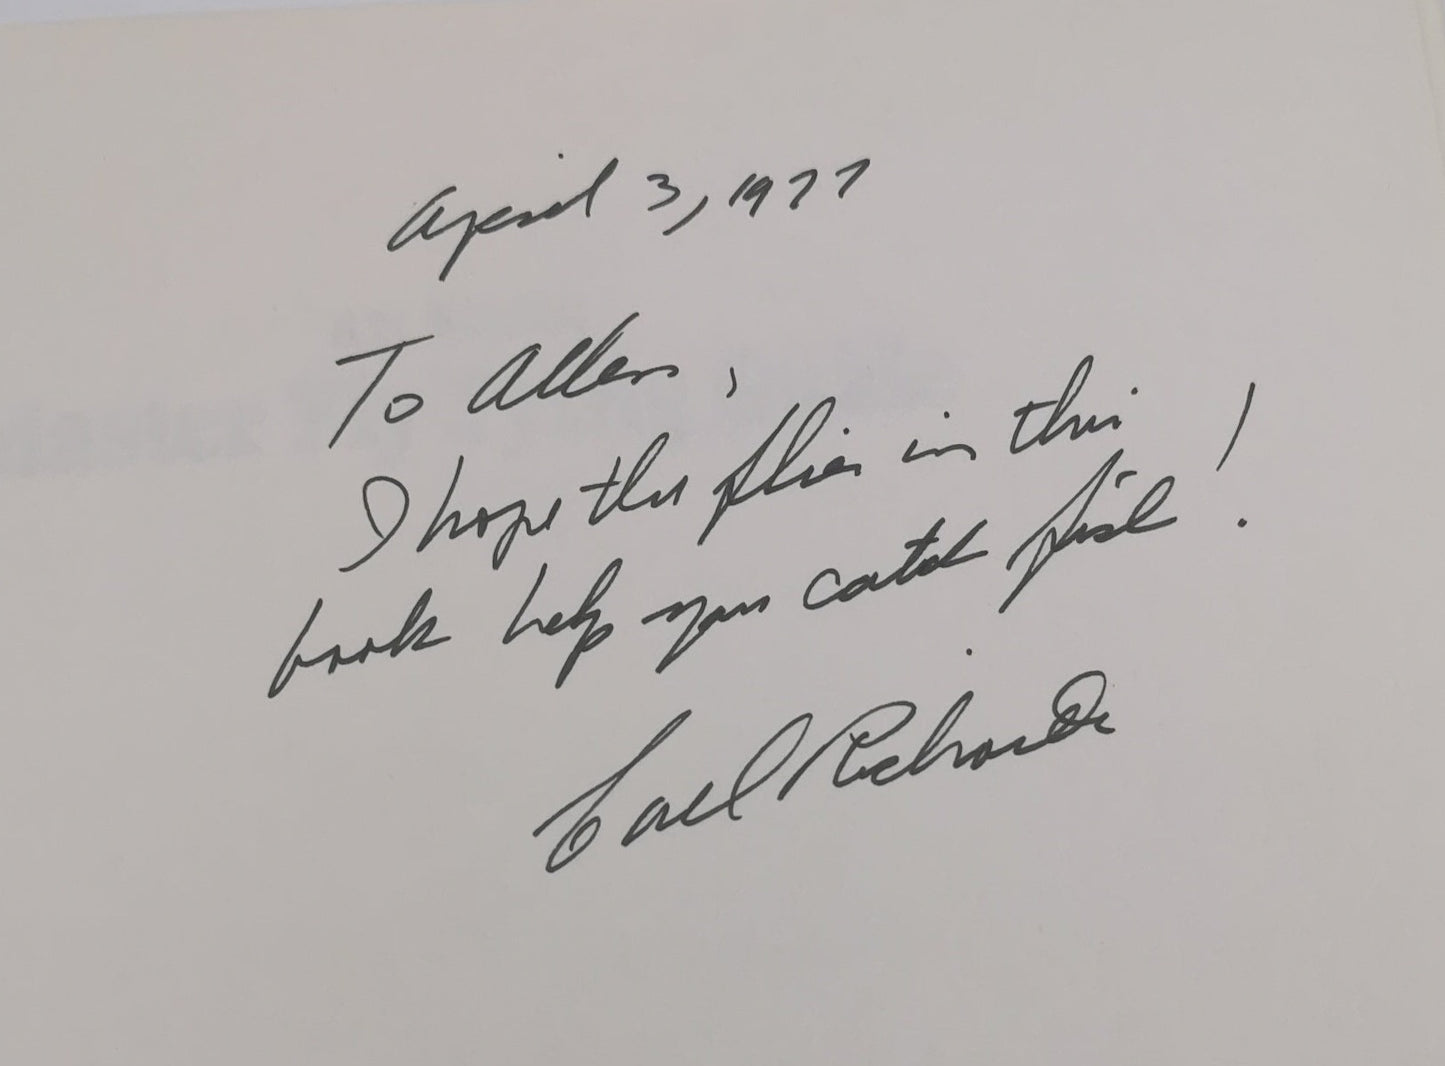 April 3, 1977
To Allen,
I hope the flies in this
book help you catch fish!
Carl Richards